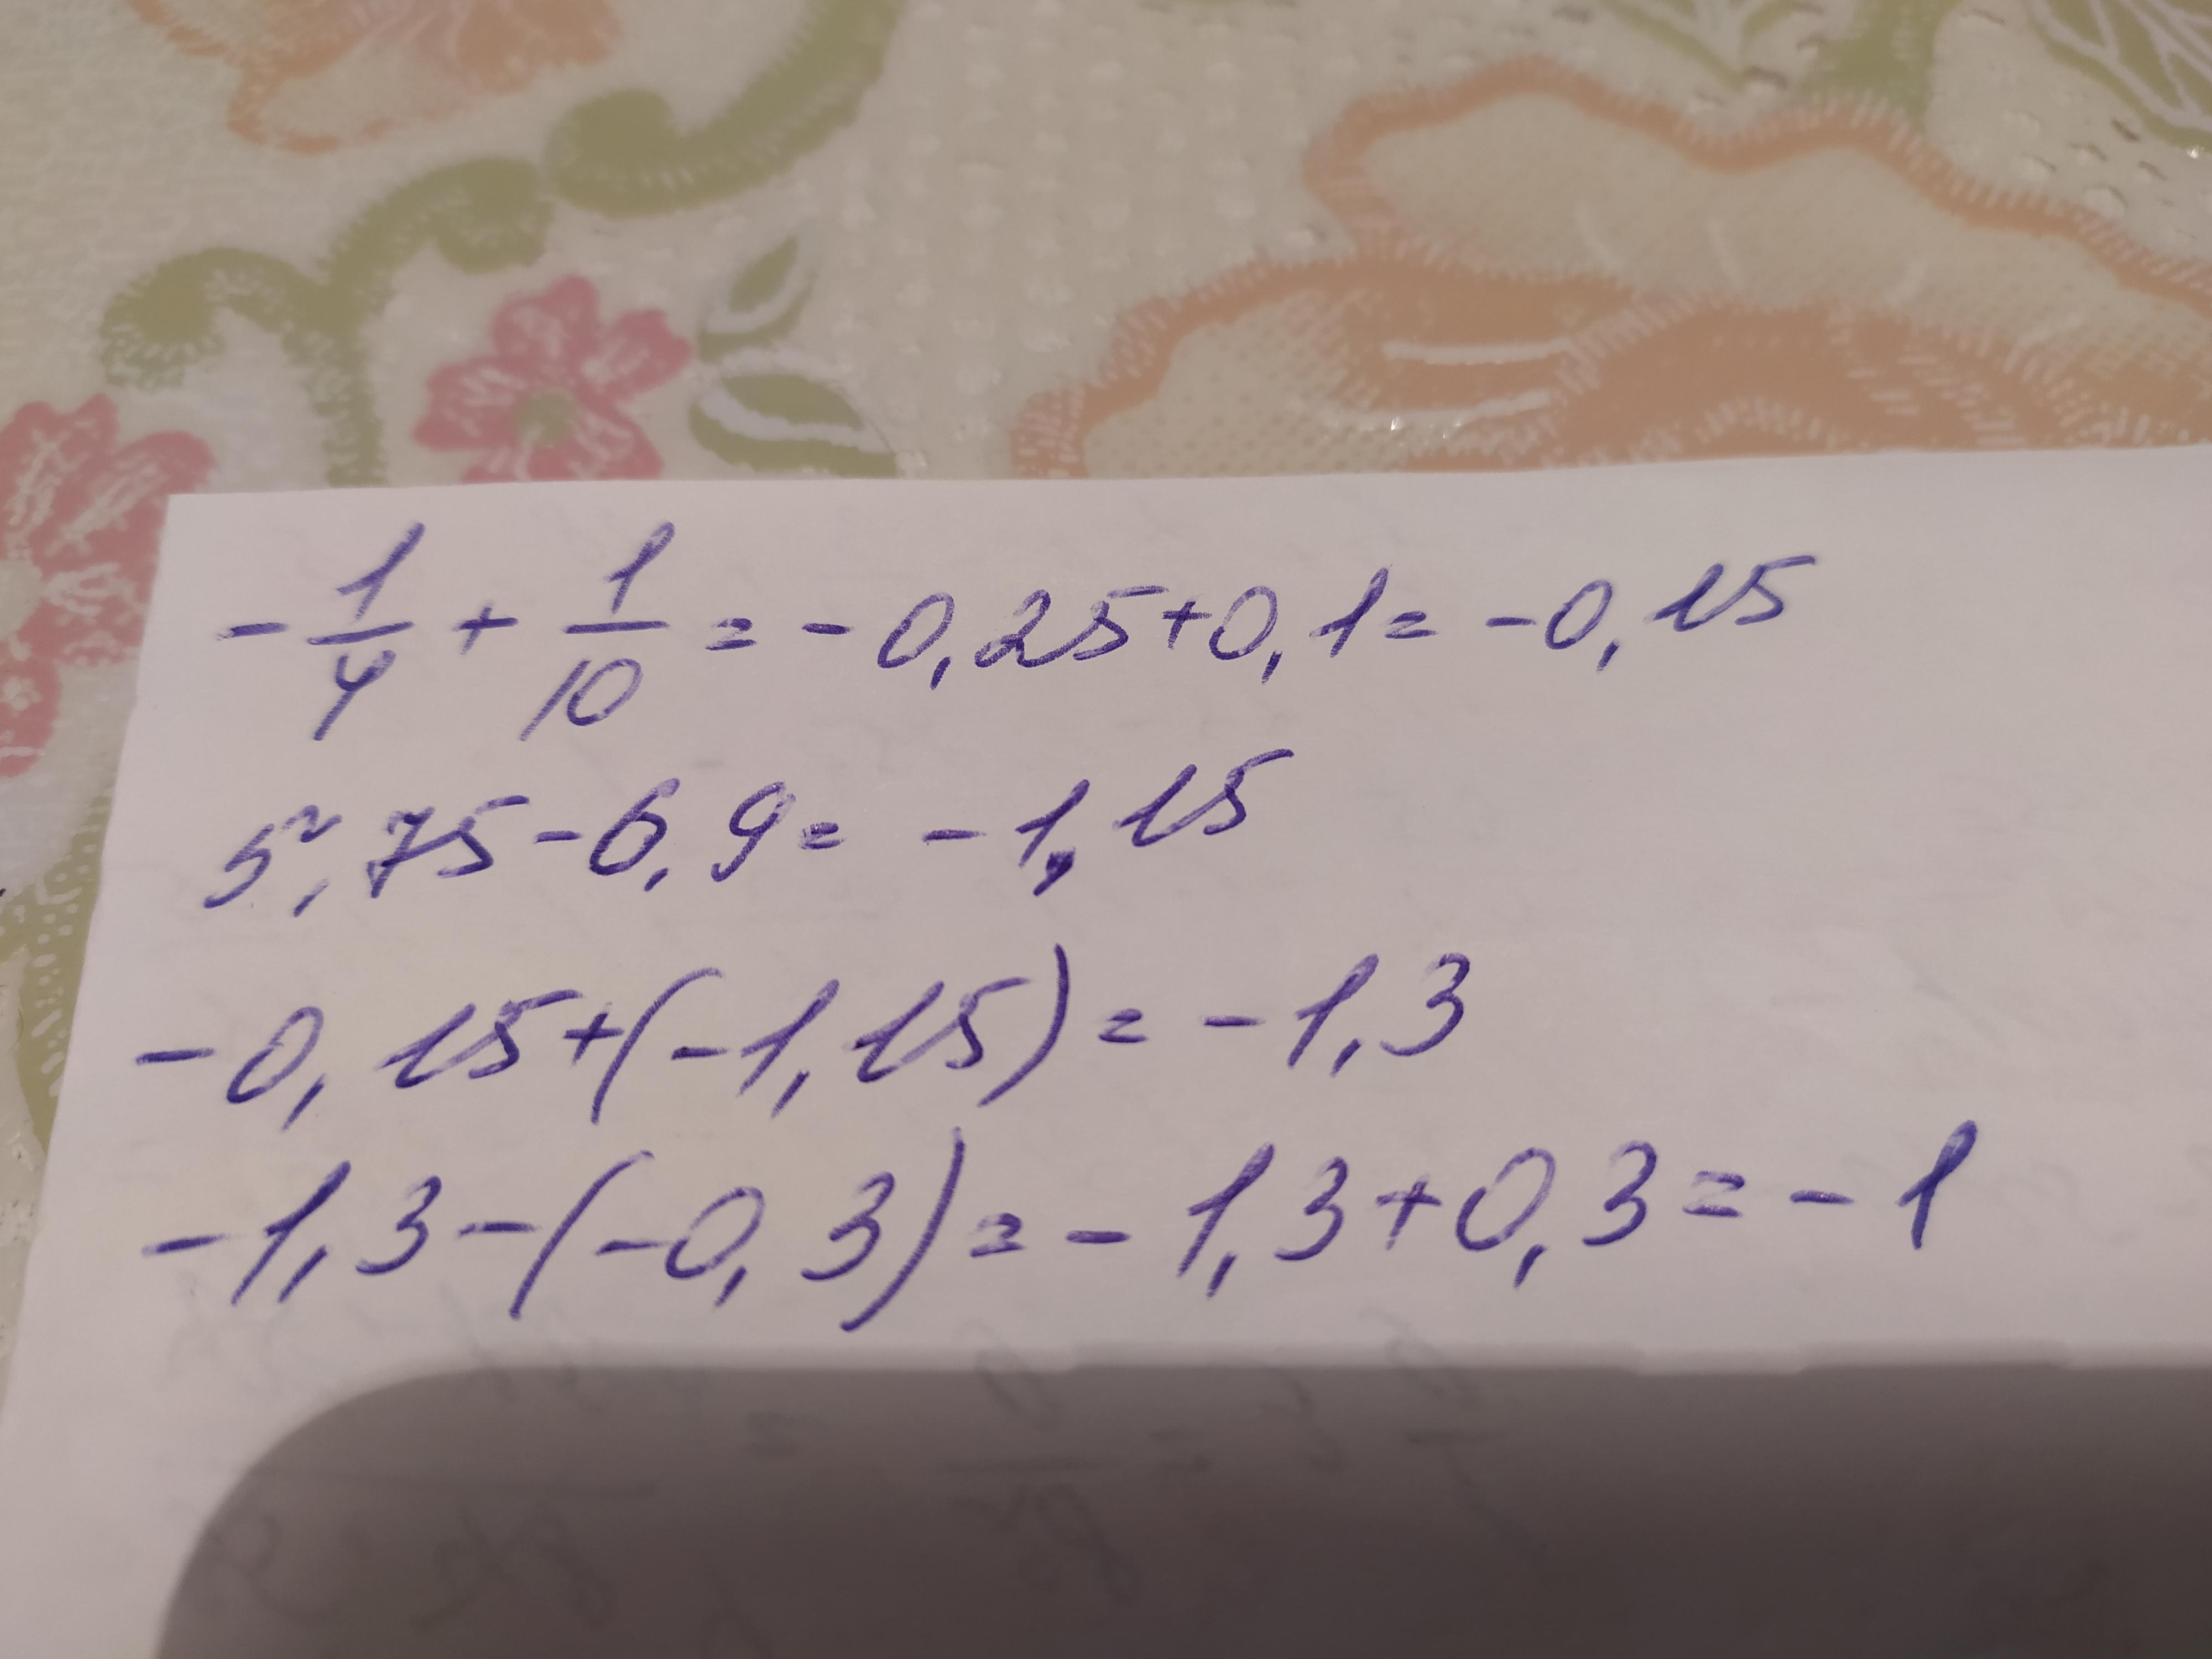 -1/4 + 1/10 = -0,25+0,1= -0,15
5,75-6,9= -1,15
-0,15+(-1,15)= -1,3
-1,3-(-0,3)=-1,3+0,3=-1